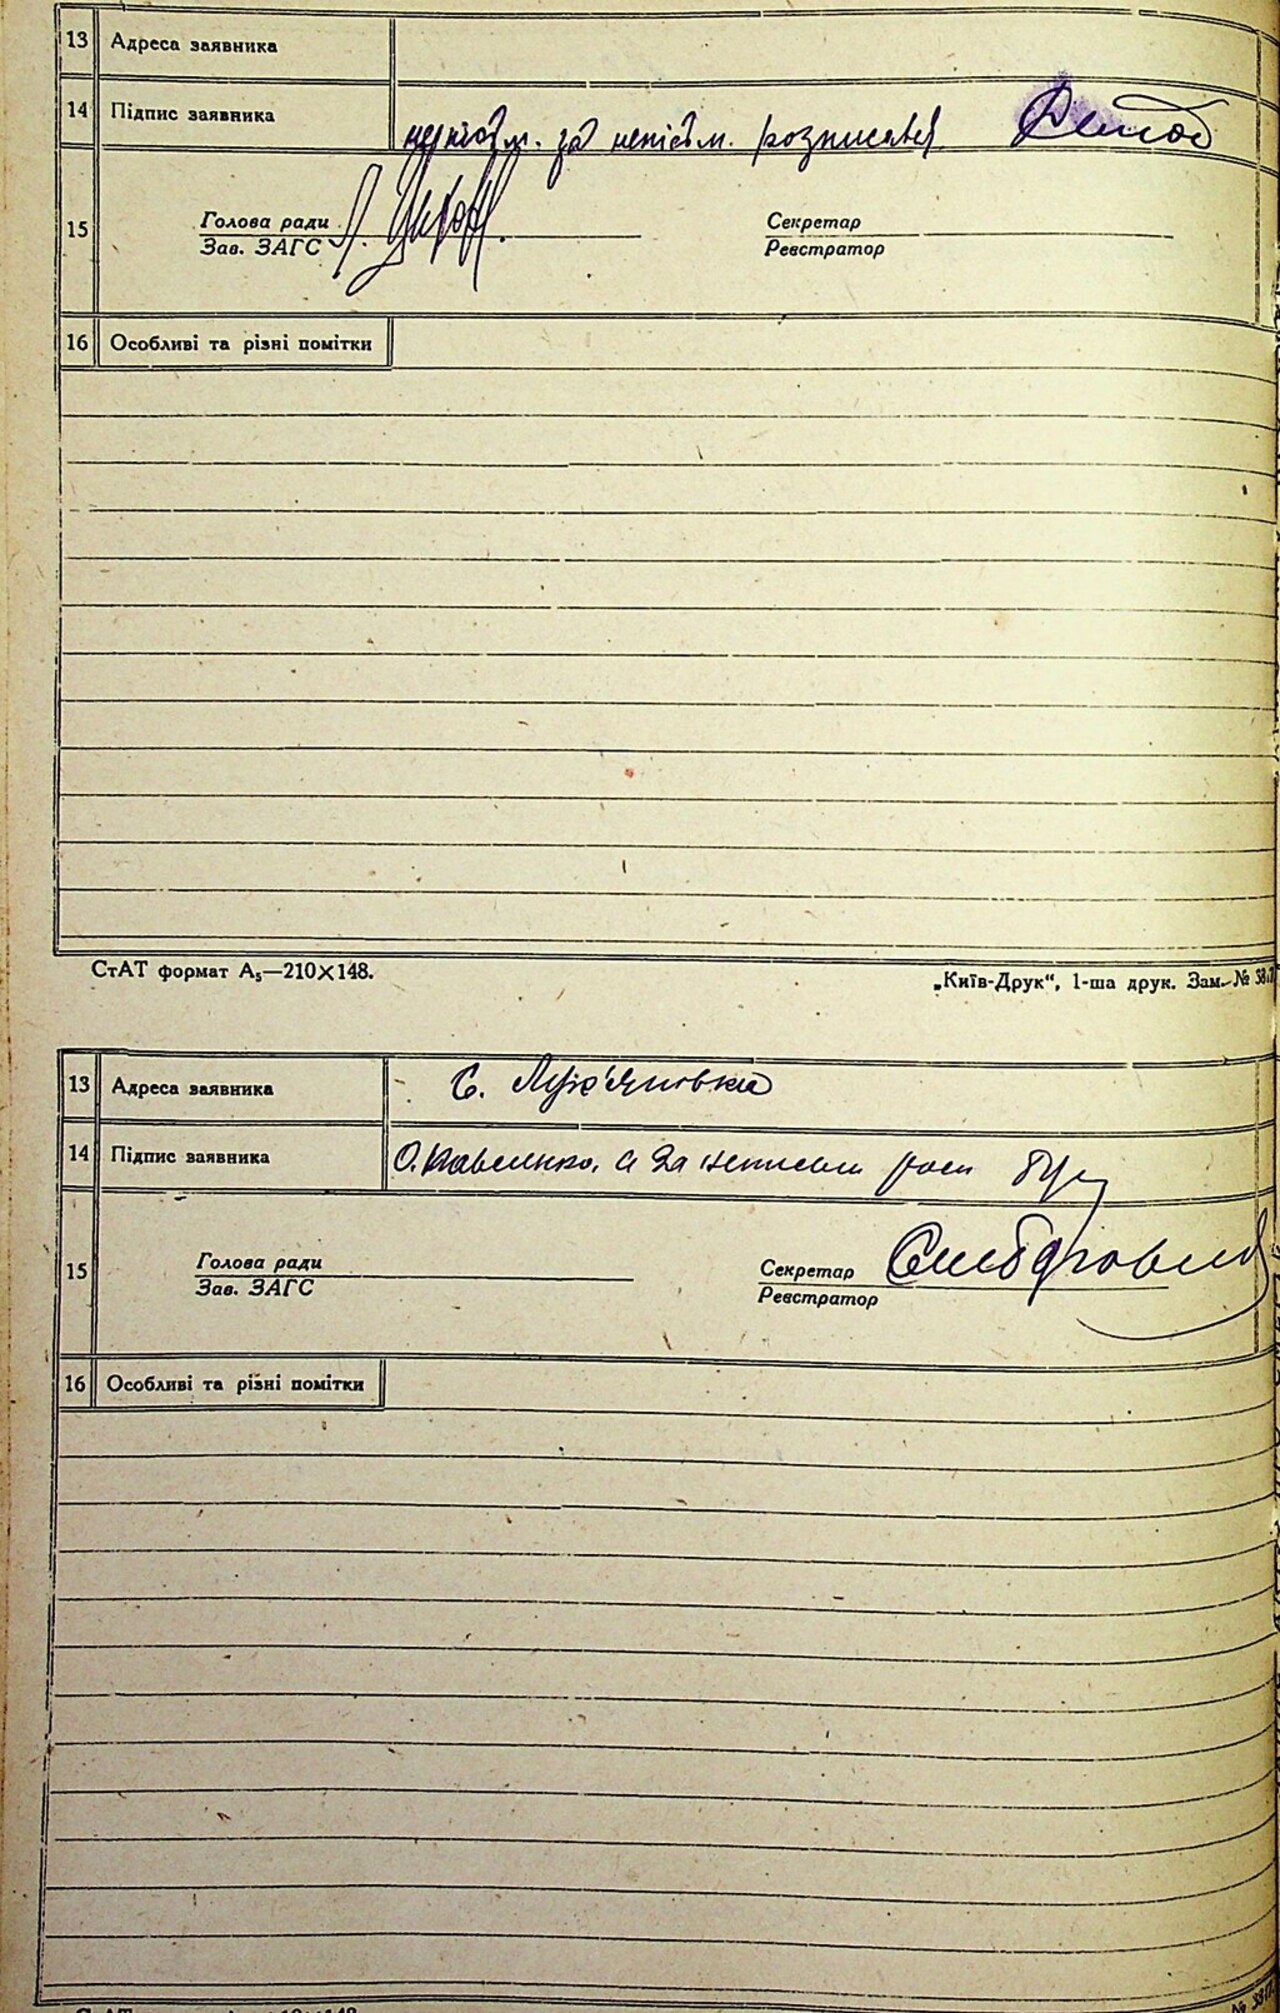 13 Адреса заявника
14 Підпис заявника неписьм. за неписьм. розписався
15 Голова ради Секретар
Зав. ЗАГС Реєстратор
16 Особливі та різні помітки
СтАТ формат А₅—210×148. „Київ-Друк“, 1-ша друк. Зам. №
13 Адреса заявника С. Лук'яновка
14 Підпис заявника О. Коваленко, а за неписьм розп
15 Голова ради Секретар
Зав. ЗАГС Реєстратор
16 Особливі та різні помітки